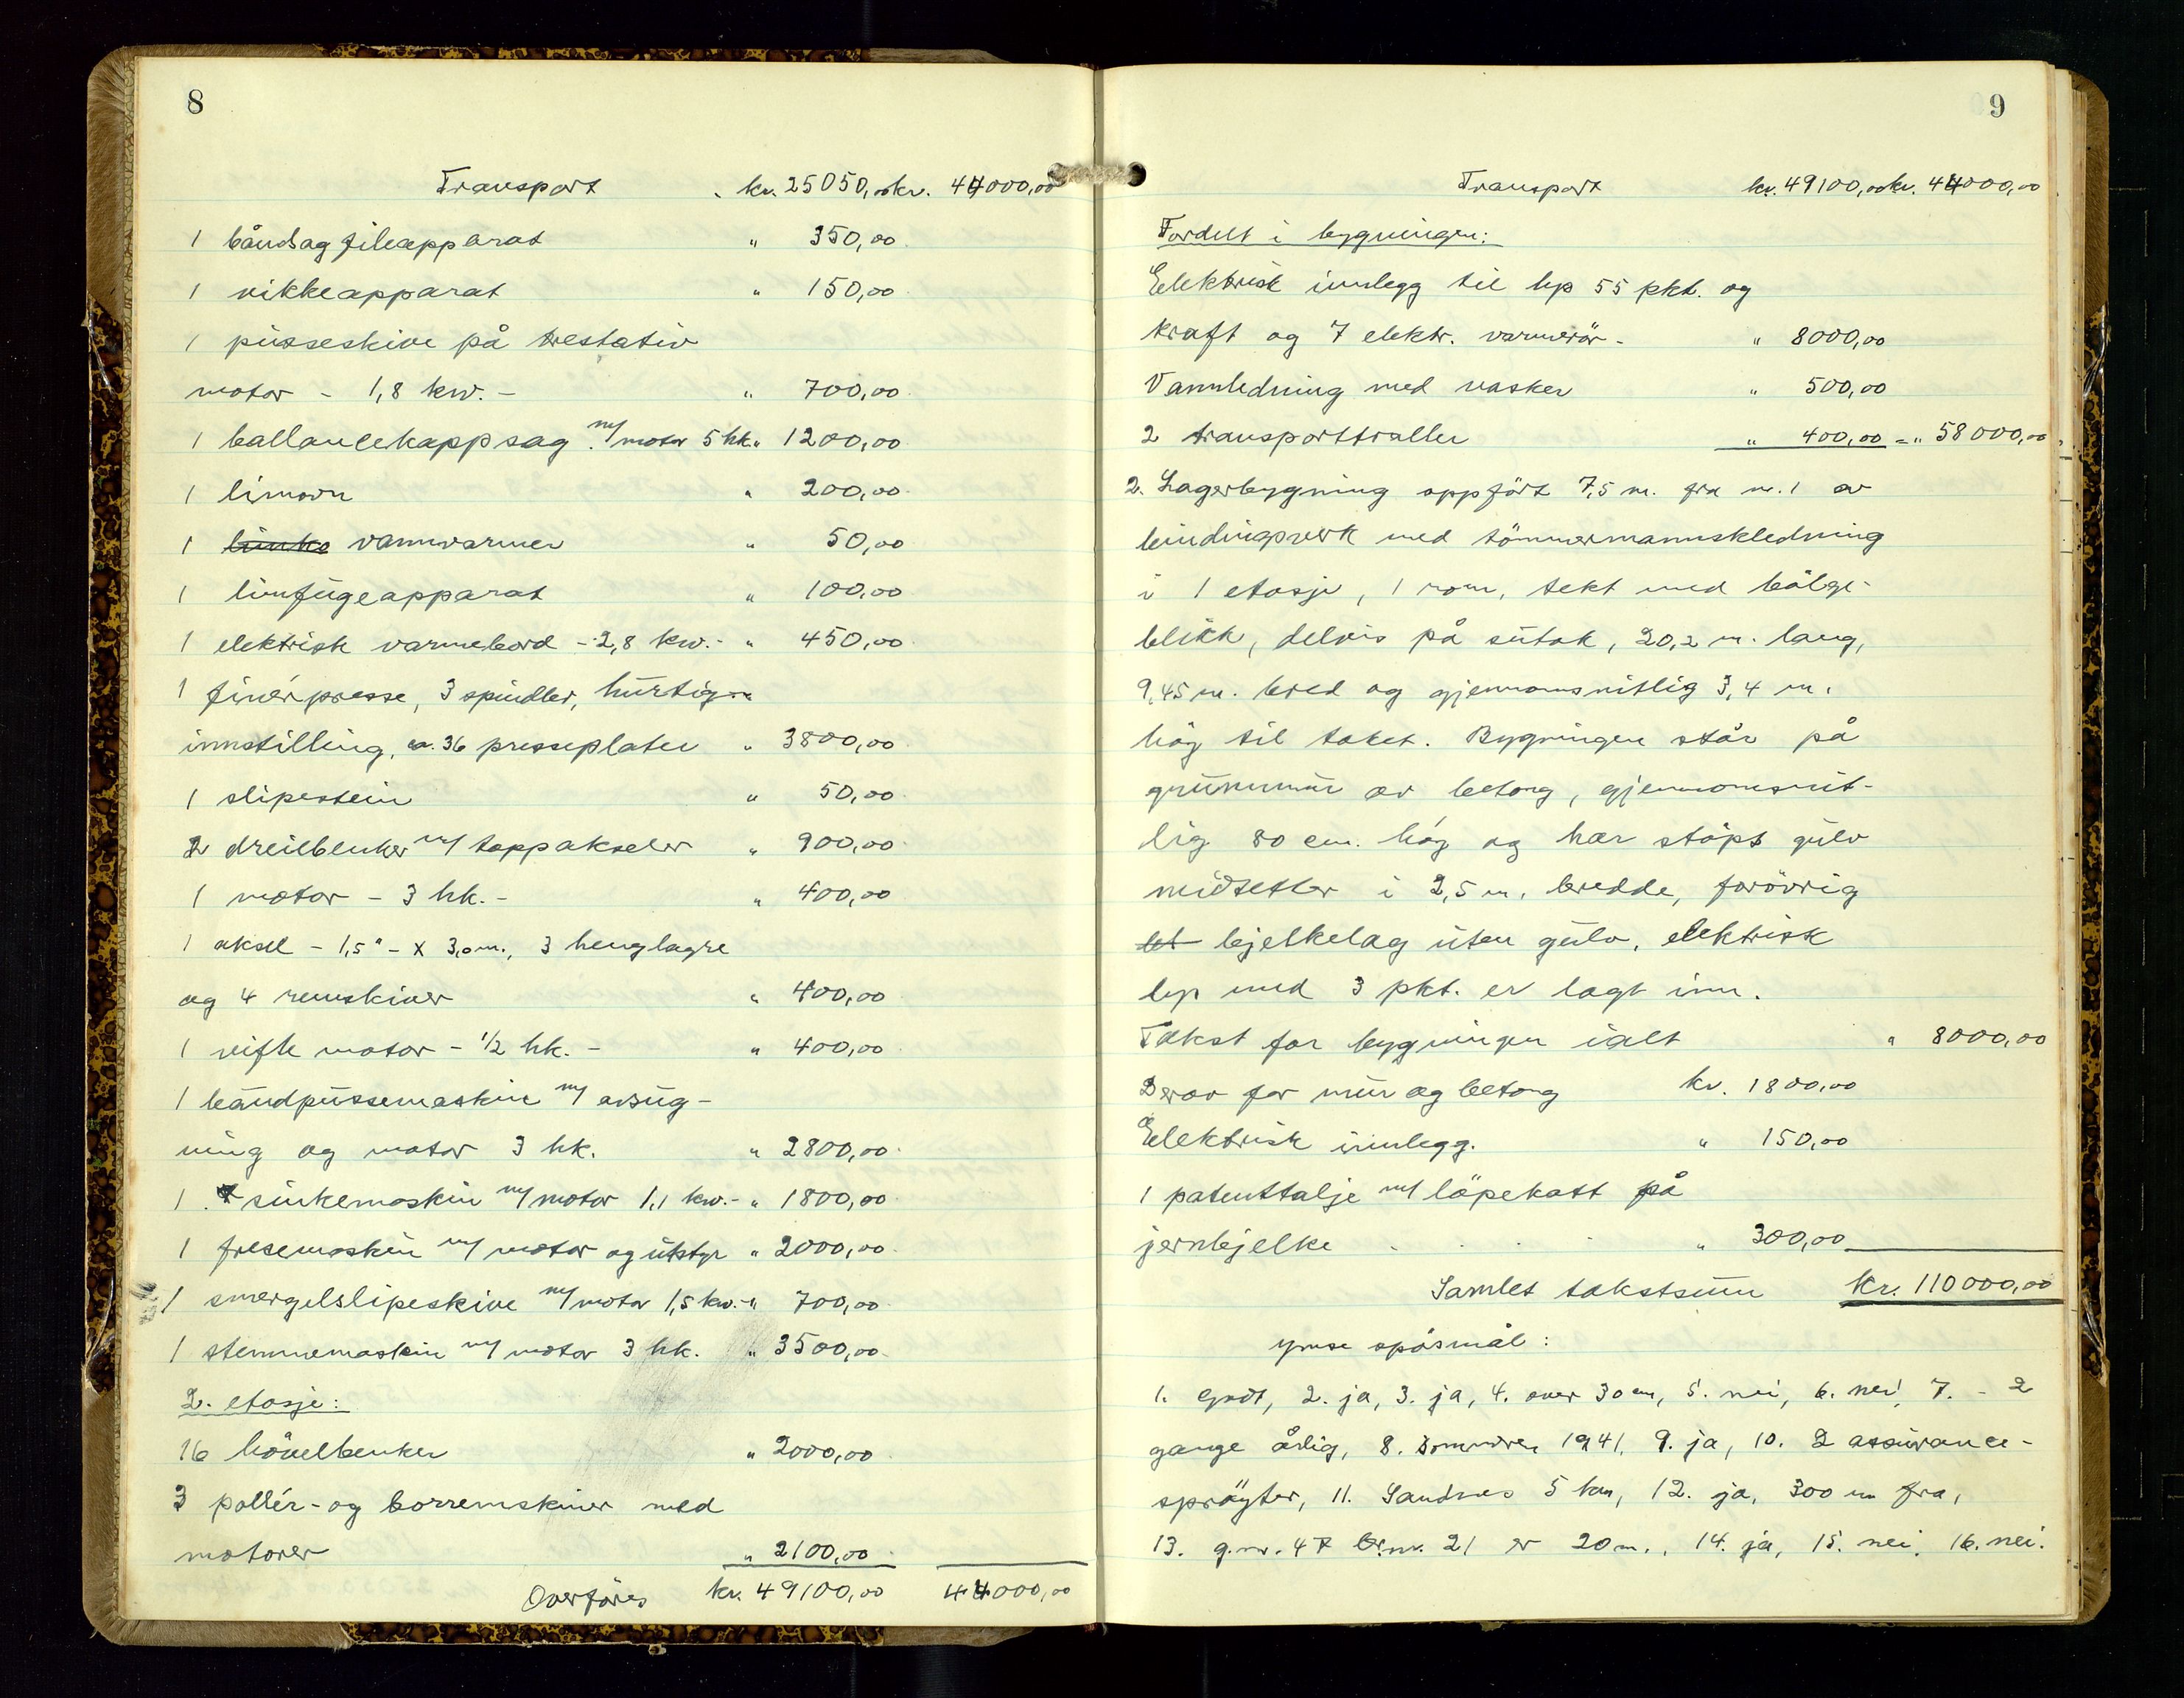 8
Transport kr. 25050,00 kr. 44000,00
1 båndsagfileapparat " 350,00
1 vikkeapparat " 150,00
1 pusseskive på trestativ
motor - 1,8 kw. - " 700,00
1 ballancekappsag m/motor 5 hk. " 1200,00
1 limovn " 200,00
1 vannvarmer " 50,00
1 limfugeapparat " 100,00
1 elektrisk varmebord - 2,8 kw. - " 450,00
1 finérpresse, 3 spindler, hurtig-
innstilling, ca. 36 presseplater " 3800,00
1 slipestein " 50,00
2 dreiebenker m/ toppakseler " 900,00
1 motor - 3 hk. - " 400,00
1 aksel - 1,5" - x 3,0 m., 3 henglagre
og 4 remskiver " 400,00
1 vifte motor - 1/2 hk. - " 400,00
1 båndpussemaskin m/ avsug-
ning og motor 3 hk. " 2800,00
1 sinkemaskin m/motor 1,1 kw. - " 1800,00
1 fresemaskin m/ motor og utstyr " 2000,00
1 smergelslipeskive m/motor 1,5 kw. - " 700,00
1 stemmemaskin m/ motor 3 hk. " 3500,00
2. etasje:
16 hövelbenker " 2000,00
3 pollér- og borremskiner med
motorer " 2100,00
Overföres kr. 49100,00 44000,00
9
Transport kr. 49100,00 kr. 44000,00
Fordelt i bygningen:
Elektrisk innlegg til lys 55 pkt. og
kraft og 7 elektr. varmerör - " 8000,00
Vannledning med vasker " 500,00
2 transporttraller " 400,00 = " 58000,00
2. Lagerbygning oppfört 7,5 m. fra nr. 1 av
bindingsverk med tömmermannskledning
i 1 etasje, 1 rom, tekt med bölge-
blikk, delvis på sutak, 20,2 m. lang,
9,45 m. bred og gjennomsnitlig 3,4 m.
hög til taket. Bygningen står på
grunnmur av betong, gjennomsnit-
lig 80 cm. hög og har stöpt gulv
midtetter i 2,5 m. bredde, forövrig
bjelkelag uten gulv, elektrisk
lys med 3 pkt. er lagt inn.
Takst for bygningen ialt " 8000,00
Derav for mur og betong kr. 1800,00
Elektrisk innlegg. " 150,00
1 patenttalje m/ löpekatt på
jernbjelke . . . . " 300,00
Samlet takstsum kr. 110000,00
Ymse spösmål:
1. Godt, 2. ja, 3. ja, 4. over 30 cm, 5. nei, 6. nei, 7. - 2
gange årlig, 8. Sommeren 1941, 9. ja, 10. 2 assurance-
spröyter, 11. Sandnes 5 km, 12. ja, 300 m fra,
13. g.nr. 47 br.nr. 21 er 20 m., 14. ja, 15. nei, 16. nei.